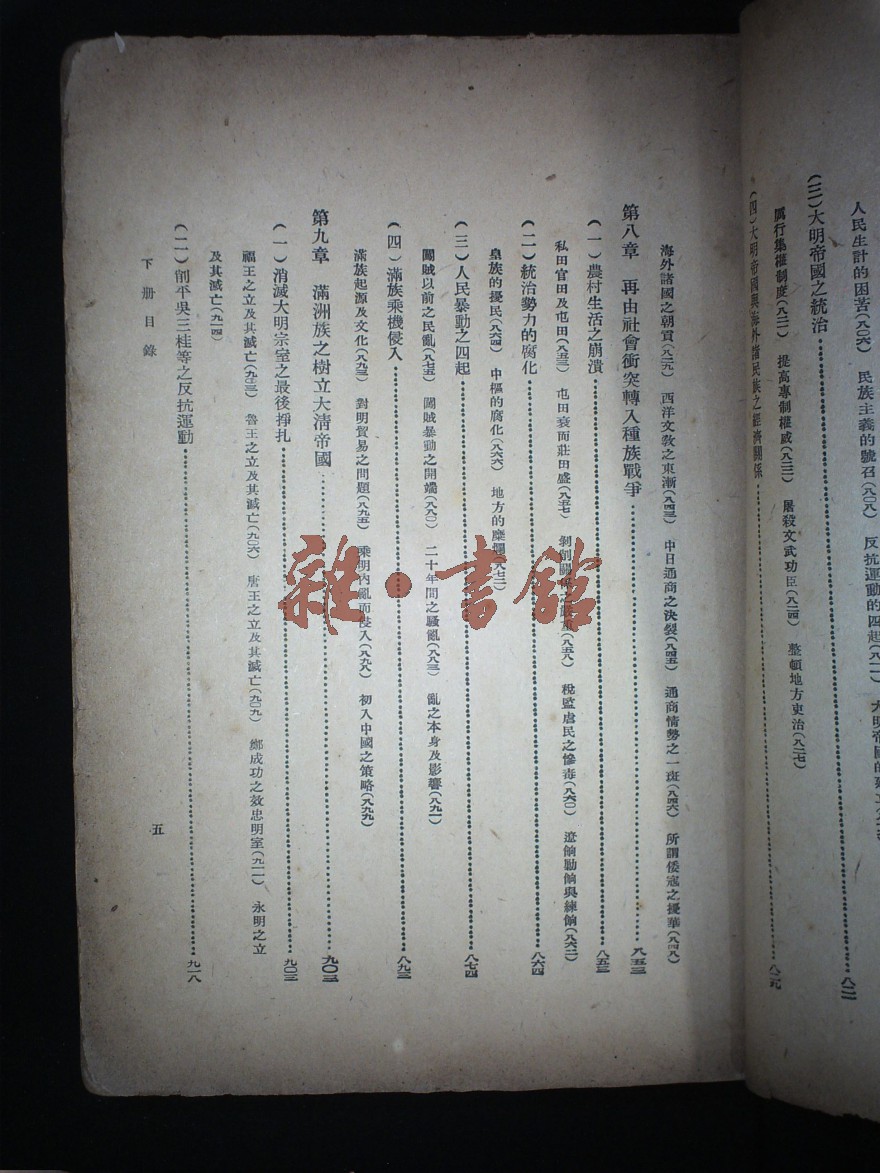 人民生計的困苦(八〇六) 民族主義的號召(八〇八) 反抗運動的四起(八一一) 大明帝國的
(三)大明帝國之統治 八二一
厲行集權制度(八二一) 提高專制權威(八二三) 屠殺文武功臣(八二四) 整頓地方吏治(八二七)
(四)大明帝國與海外諸民族之經濟關係 八二九
海外諸國之朝貢(八二九) 西洋文敎之東漸(八四三) 中日通商之決裂(八四五) 通商情勢之一斑(八四六) 所謂倭寇之擾華(八四八)
第八章 再由社會衝突轉入種族戰爭 八五三
(一)農村生活之崩潰 八五三
私田官田及屯田(八五三) 屯田衰而莊田盛(八五七) 剝削關係之(八五八) 稅監虐民之慘毒(八六〇) 遼餉勦餉與練餉(八六二)
(二)統治勢力的腐化 八六四
皇族的擾民(八六四) 中樞的腐化(八六六) 地方的糜爛(八七二)
(三)人民暴動之四起 八七四
闖賊以前之民亂(八七五) 闖賊暴動之開端(八八〇) 二十年間之騷亂(八八三) 亂之本身及影響(八九一)
(四)滿族乘機侵入 八九三
滿族起源及文化(八九三) 對明貿易之問題(八九五) 乘明內亂而侵入(八九八) 初入中國之策略(八九九)
第九章 滿洲族之樹立大清帝國 九〇三
(一)消滅大明宗室之最後掙扎 九〇三
福王之立及其滅亡(九〇三) 魯王之立及其滅亡(九〇六) 唐王之立及其滅亡(九〇九) 鄭成功之效忠明室(九一一) 永明之立
及其滅亡(九一四)
(二)削平吳三桂等之反抗運動 九一八
下冊目錄
五
雜·書館